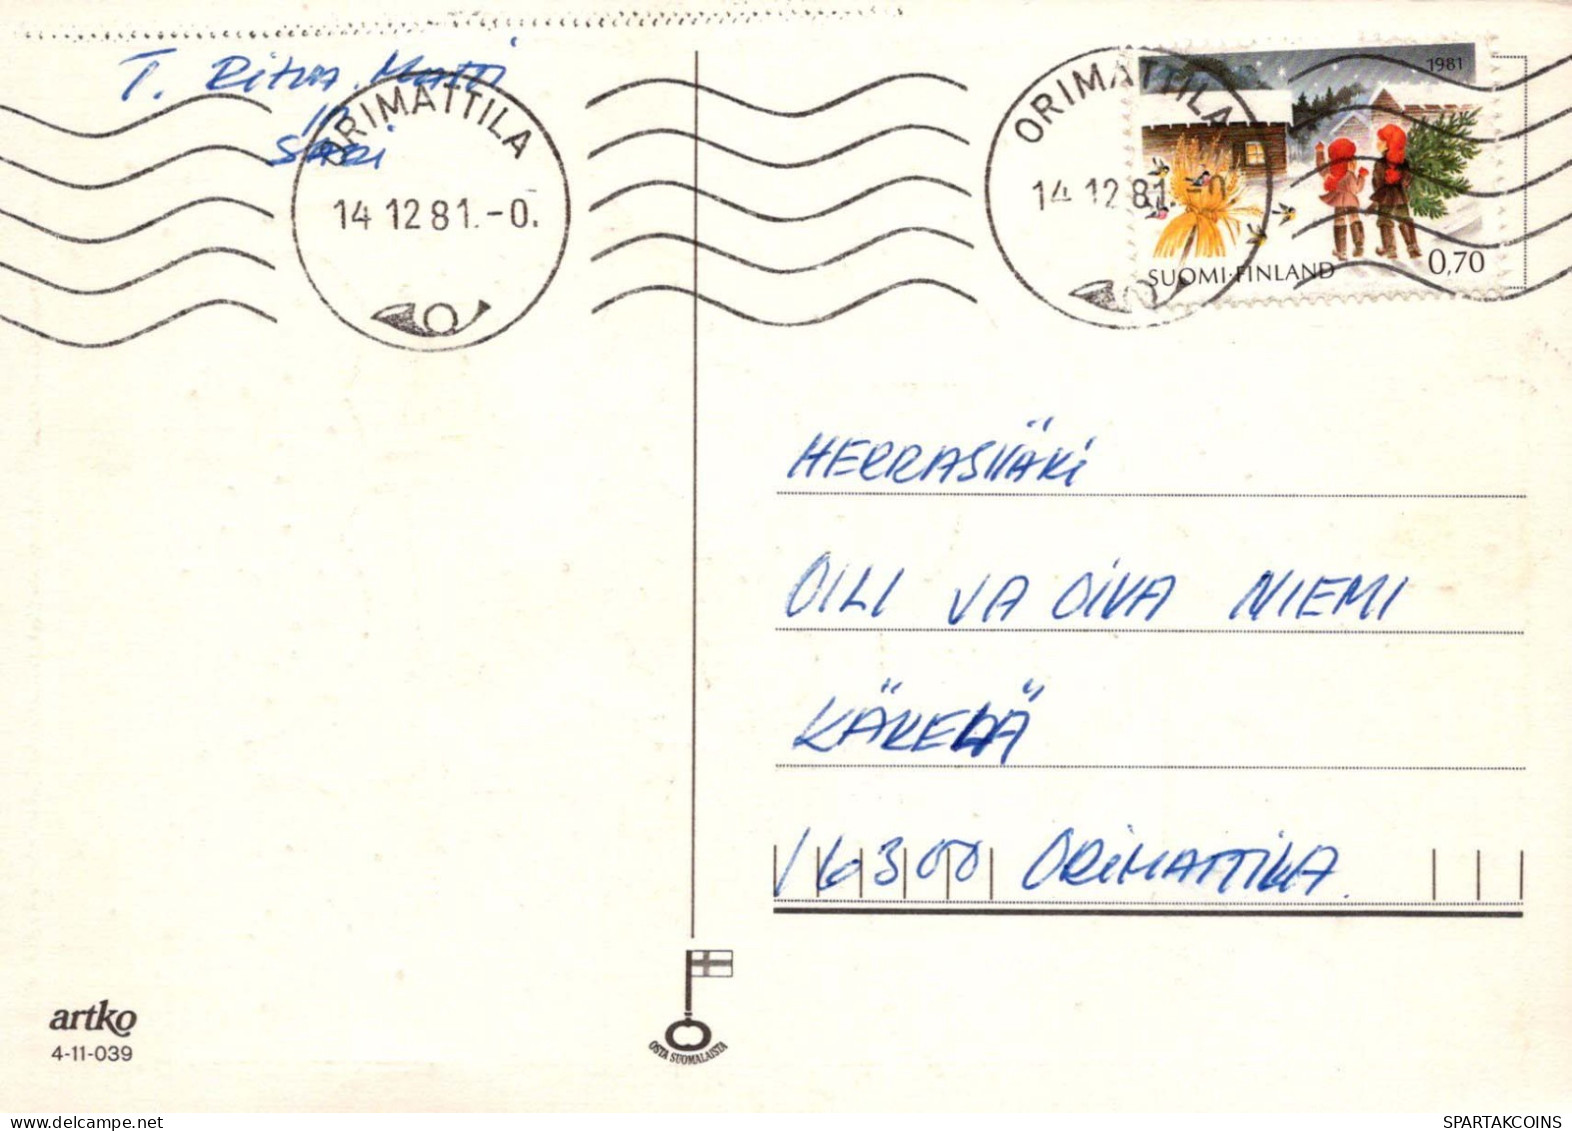 T. Ritva, Matti
ja
Sari
ORIMATTILA
14 12 81.-0.
ORIMATTILA
14 12 81.-0
1981
SUOMI·FINLAND 0,70
HERRASVÄKI
OILI JA OIVA NIEMI
KÄKELÄ
16300 ORIMATTILA.
artko
4-11-039
OSTA SUOMALAISTA
SPARTAKCOINS